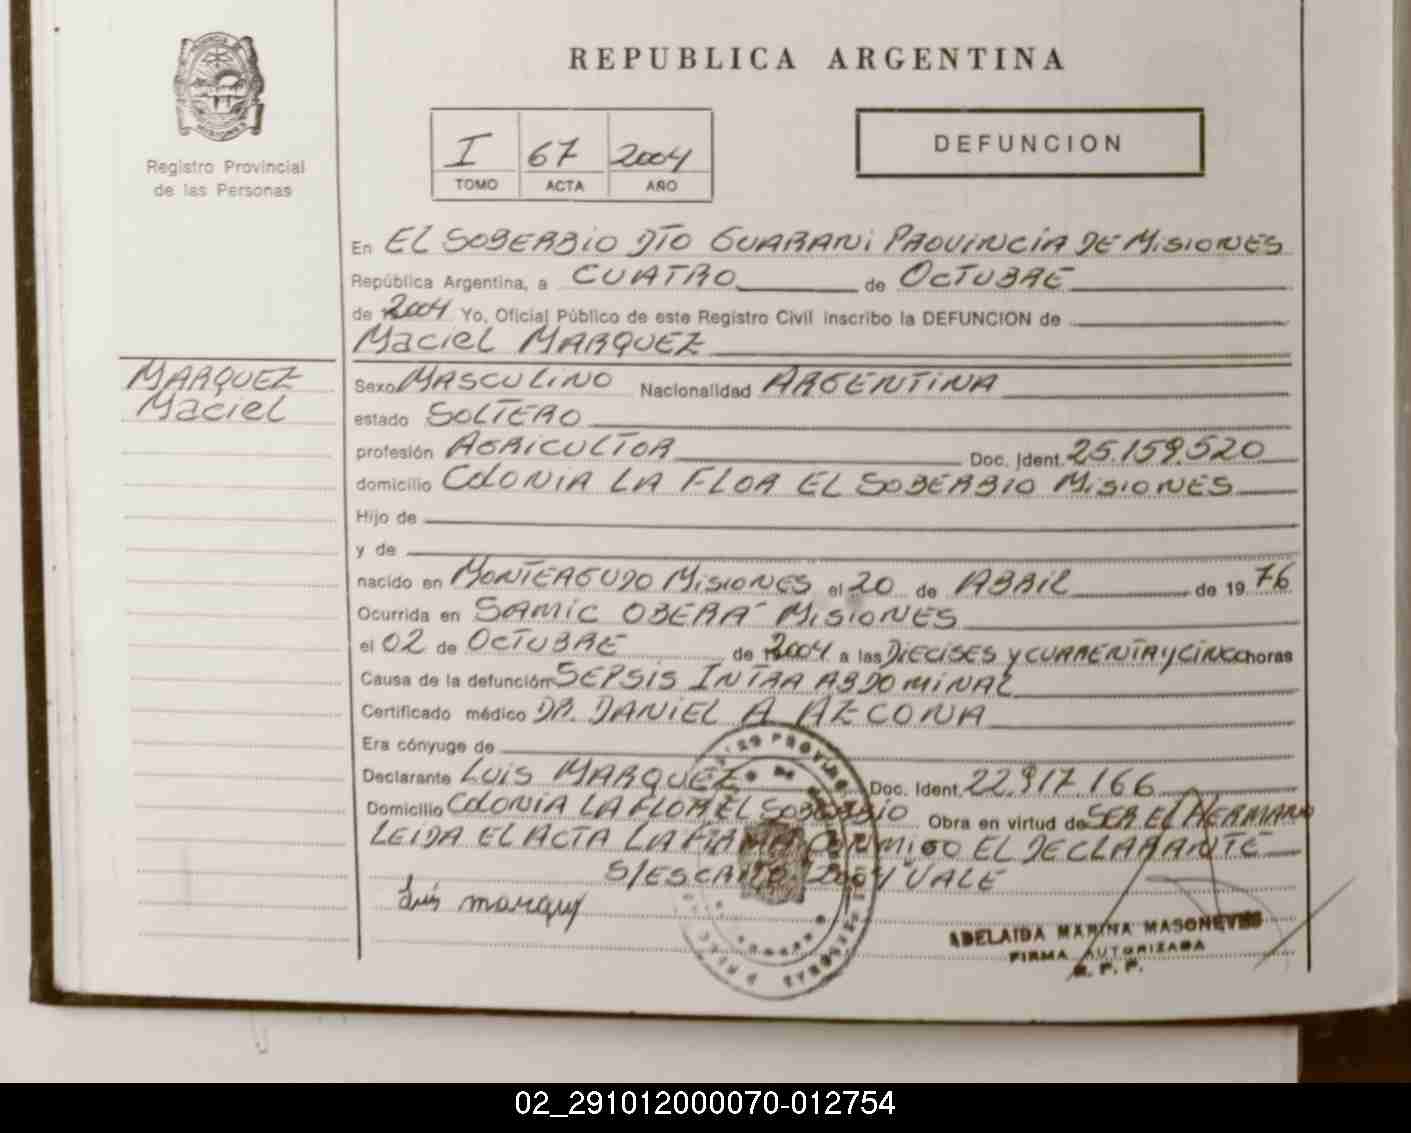 REPUBLICA ARGENTINA
Registro Provincial
de las Personas
I 67 2004
TOMO ACTA AÑO
DEFUNCION
En EL SOBERBIO DTO GUARANI PROVINCIA DE MISIONES
República Argentina, a CUATRO de OCTUBRE
de 2004 Yo, Oficial Público de este Registro Civil inscribo la DEFUNCION de
Maciel MARQUEZ
MARQUEZ
Maciel
Sexo MASCULINO Nacionalidad ARGENTINA
estado SOLTERO
profesión AGRICULTOR Doc. Ident. 25.159.520
domicilio COLONIA LA FLOR EL SOBERBIO MISIONES
Hijo de
y de
nacido en MONTEAGUDO MISIONES el 20 de ABRIL de 1976
Ocurrida en SAMIC OBERA MISIONES
el 02 de OCTUBRE de 2004 a las DIECISES Y CUARENTA Y CINCO horas
Causa de la defunción SEPSIS INTRA ABDOMINAL
Certificado médico DR. DANIEL A AZCONA
Era cónyuge de
Declarante LUIS MARQUEZ Doc. Ident. 22.917.166
Domicilio COLONIA LA FLOR EL SOBERBIO Obra en virtud de SER EL HERMANO
LEIDA EL ACTA LA FIRMA CONMIGO EL DECLARANTE
S/ESCRITO 2004 VALE
Luis marquez
ADELAIDA MARINA MASONEVES
FIRMA AUTORIZADA
R. P. P.
02_291012000070-012754